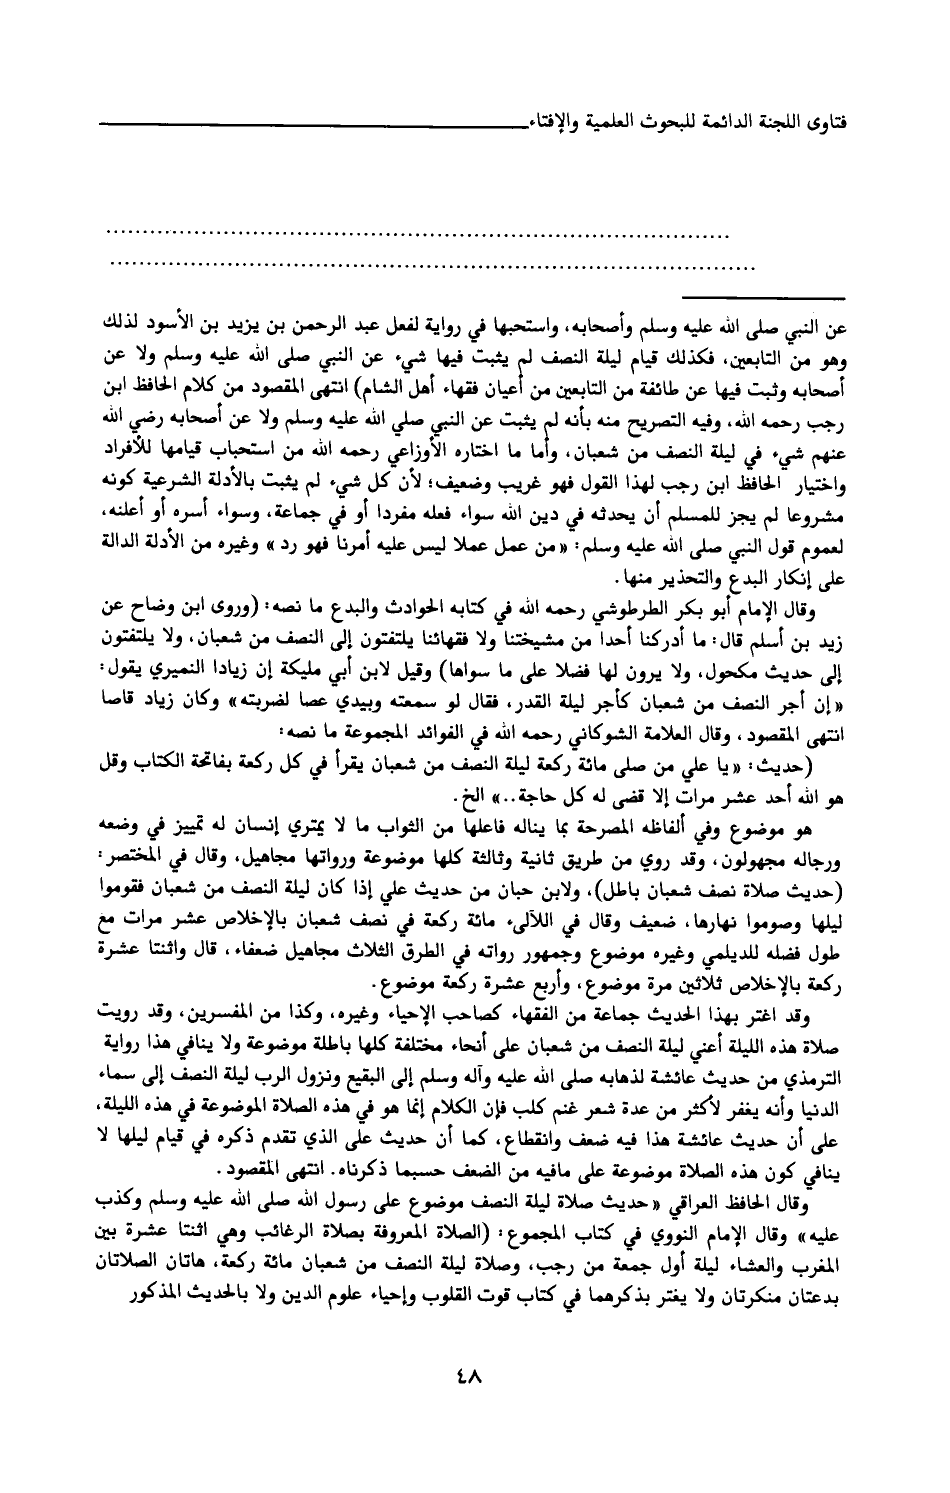 فتاوى اللجنة الدائمة للبحوث العلمية والإفتاء
عن النبي صلى الله عليه وسلم وأصحابه، واستحبها في رواية لفعل عبد الرحمن بن يزيد بن الأسود لذلك
وهو من التابعين، فكذلك قيام ليلة النصف لم يثبت فيها شيء عن النبي صلى الله عليه وسلم ولا عن
أصحابه وثبت فيها عن طائفة من التابعين من أعيان فقهاء أهل الشام) انتهى المقصود من كلام الحافظ ابن
رجب رحمه الله، وفيه التصريح منه بأنه لم يثبت عن النبي صلى الله عليه وسلم ولا عن أصحابه رضي الله
عنهم شيء في ليلة النصف من شعبان، وأما ما اختاره الأوزاعي رحمه الله من استحباب قيامها للأفراد
واختيار الحافظ ابن رجب لهذا القول فهو غريب وضعيف؛ لأن كل شيء لم يثبت بالأدلة الشرعية كونه
مشروعا لم يجز للمسلم أن يحدثه في دين الله سواء فعله مفردا أو في جماعة، وسواء أسره أو أعلنه،
لعموم قول النبي صلى الله عليه وسلم: «من عمل عملا ليس عليه أمرنا فهو رد» وغيره من الأدلة الدالة
على إنكار البدع والتحذير منها.
وقال الإمام أبو بكر الطرطوشي رحمه الله في كتابه الحوادث والبدع ما نصه: (وروى ابن وضاح عن
زيد بن أسلم قال: ما أدركنا أحدا من مشيختنا ولا فقهائنا يلتفتون إلى النصف من شعبان، ولا يلتفتون
إلى حديث مكحول، ولا يرون لها فضلا على ما سواها) وقيل لابن أبي مليكة إن زيادا النميري يقول:
«إن أجر النصف من شعبان كأجر ليلة القدر، فقال لو سمعته وبيدي عصا لضربته» وكان زياد قاصا
انتهى المقصود، وقال العلامة الشوكاني رحمه الله في الفوائد المجموعة ما نصه:
(حديث: «يا علي من صلى مائة ركعة ليلة النصف من شعبان يقرأ في كل ركعة بفاتحة الكتاب وقل
هو الله أحد عشر مرات إلا قضى له كل حاجة..» الخ.
هو موضوع وفي ألفاظه المصرحة بما يناله فاعلها من الثواب ما لا يمتري إنسان له تمييز في وضعه
ورجاله مجهولون، وقد روي من طريق ثانية وثالثة كلها موضوعة ورواتها مجاهيل، وقال في المختصر:
(حديث صلاة نصف شعبان باطل)، ولابن حبان من حديث علي إذا كان ليلة النصف من شعبان فقوموا
ليلها وصوموا نهارها، ضعيف وقال في اللآلىء مائة ركعة في نصف شعبان بالإخلاص عشر مرات مع
طول فضله للديلمي وغيره موضوع وجمهور رواته في الطرق الثلاث مجاهيل ضعفاء، قال واثنتا عشرة
ركعة بالإخلاص ثلاثين مرة موضوع، وأربع عشرة ركعة موضوع.
وقد اغتر بهذا الحديث جماعة من الفقهاء كصاحب الإحياء وغيره، وكذا من المفسرين، وقد رويت
صلاة هذه الليلة أعني ليلة النصف من شعبان على أنحاء مختلفة كلها باطلة موضوعة ولا ينافي هذا رواية
الترمذي من حديث عائشة لذهابه صلى الله عليه وآله وسلم إلى البقيع ونزول الرب ليلة النصف إلى سماء
الدنيا وأنه يغفر لأكثر من عدة شعر غنم كلب فإن الكلام إنما هو في هذه الصلاة الموضوعة في هذه الليلة،
على أن حديث عائشة هذا فيه ضعف وانقطاع، كما أن حديث على الذي تقدم ذكره في قيام ليلها لا
ينافي كون هذه الصلاة موضوعة على مافيه من الضعف حسبما ذكرناه. انتهى المقصود.
وقال الحافظ العراقي «حديث صلاة ليلة النصف موضوع على رسول الله صلى الله عليه وسلم وكذب
عليه» وقال الإمام النووي في كتاب المجموع: (الصلاة المعروفة بصلاة الرغائب وهي اثنتا عشرة بين
المغرب والعشاء ليلة أول جمعة من رجب، وصلاة ليلة النصف من شعبان مائة ركعة، هاتان الصلاتان
بدعتان منكرتان ولا يغتر بذكرهما في كتاب قوت القلوب وإحياء علوم الدين ولا بالحديث المذكور
٤٨